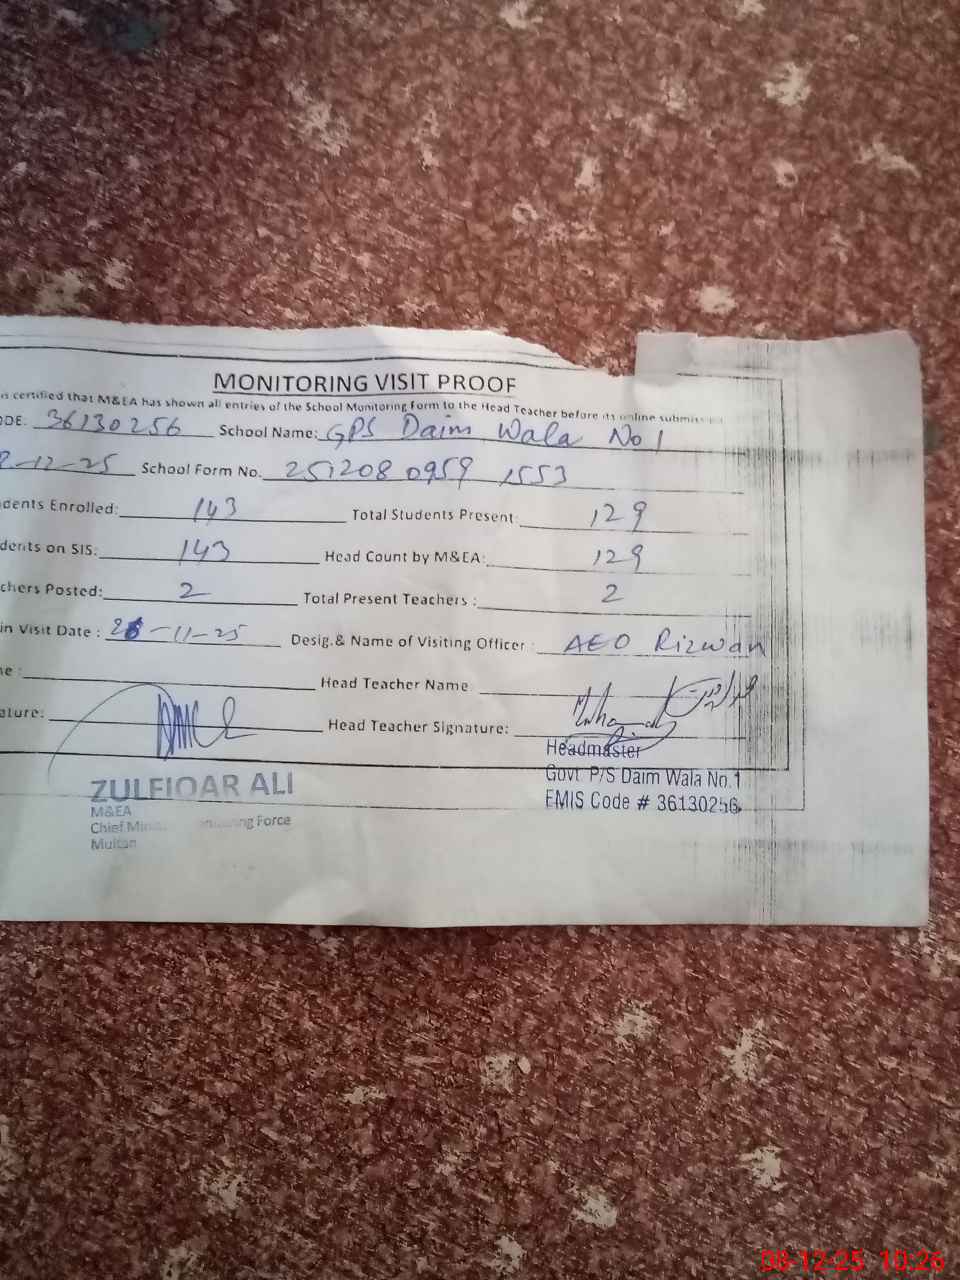 MONITORING VISIT PROOF
is certified that M&EA has shown all entries of the School Monitoring Form to the Head Teacher before its online submiss
ODE: 36130256 School Name: GPS Daim Wala No 1
-12-25 School Form No. 251208 0959 1553
dents Enrolled: 143 Total Students Present: 129
dents on SIS: 143 Head Count by M&EA: 129
chers Posted: 2 Total Present Teachers : 2
in Visit Date : -11-25 Desig.& Name of Visiting Officer : AEO Rizwan
me : Head Teacher Name
ature: Head Teacher Signature:
Headmaster
Govt. P/S Daim Wala No.1
EMIS Code # 36130256
ZULFIQAR ALI
M&EA
Chief Minis onitoring Force
Multan
08-12-25 10:26